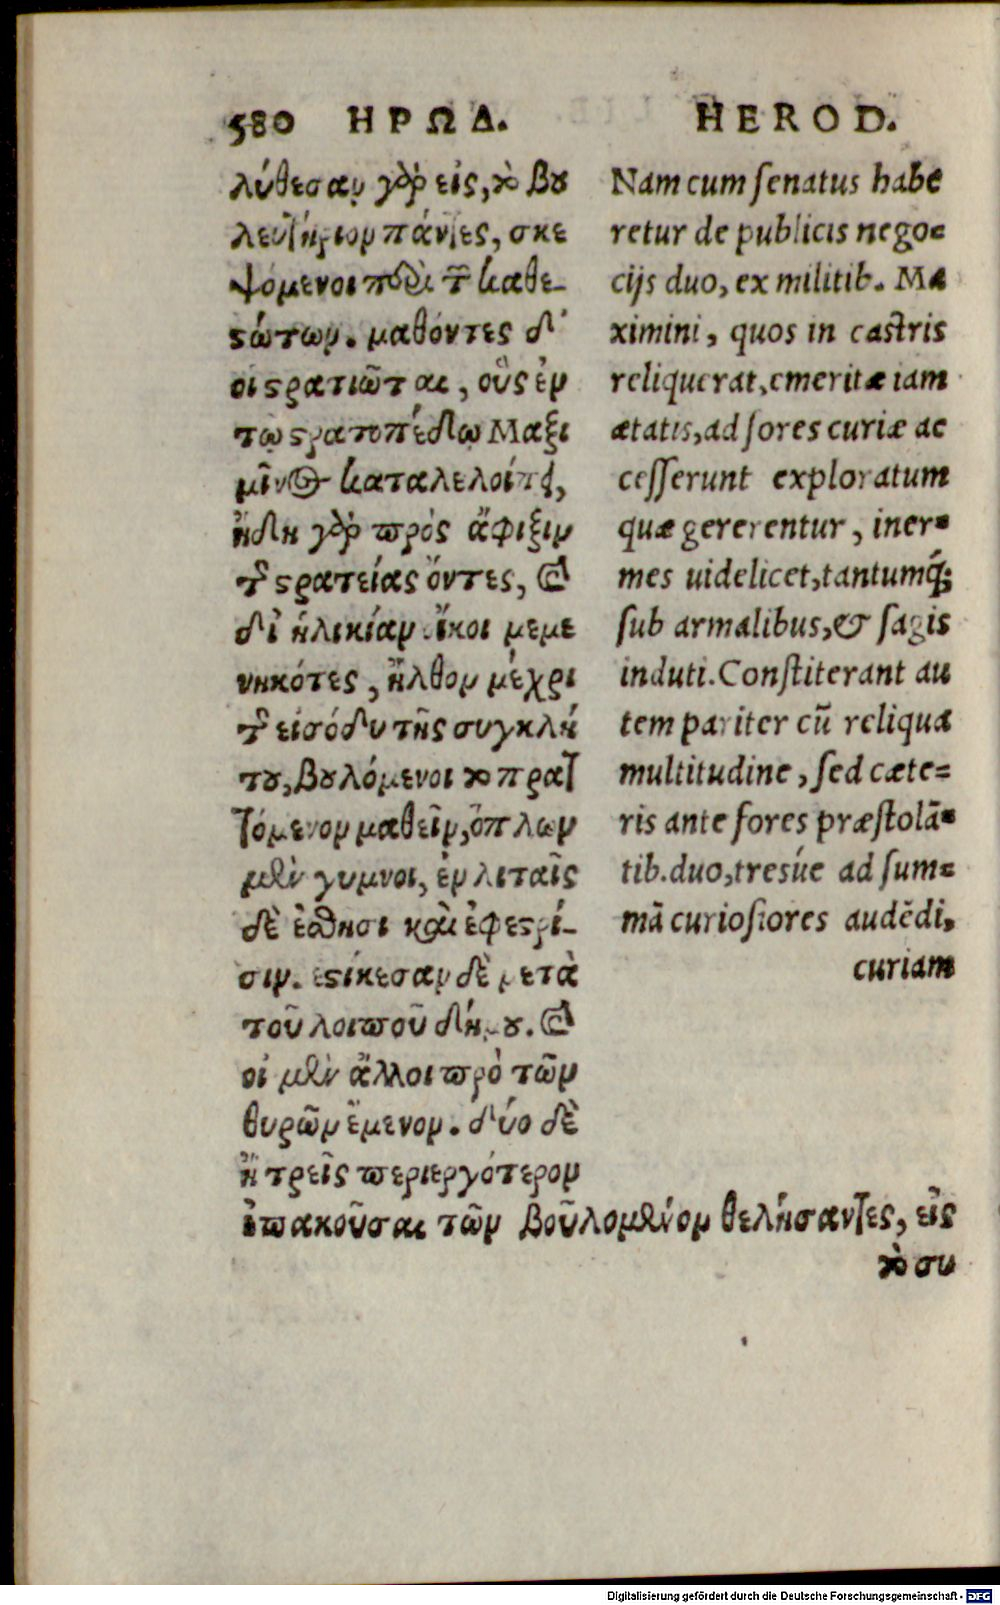 580 ΗΡΩΔ. HEROD.
λύθεσαν γὰρ εἰς, τὸ βου
λευτήριον πάντες, σκε
ψόμενοι περὶ τῶν καθε-
στώτων. μαθόντες δ'
οἱ στρατιῶται, οὓς ἐν
τῷ στρατοπέδῳ Μαξι
μῖνος καταλελοίπει,
ἤδη γὰρ πρὸς ἄφιξιν
τῆς στρατείας ὄντες, καὶ
δι ἡλικίαν οἴκοι μεμε
νηκότες, ἦλθον μέχρι
τῆς εἰσόδου τῆς συγκλή
του, βουλόμενοι τὸ πρατ
τόμενον μαθεῖν, ὅπλων
μὲν γυμνοι, ἐν λιταῖς
δὲ ἐσθῆσι καὶ ἐφεστρί-
σιν. εστίκεσαν δὲ μετὰ
τοῦ λοιποῦ δήμου. καὶ
οἱ μὲν ἄλλοι πρὸ τῶν
θυρῶν ἔμενον. δύο δὲ
ἢ τρεῖς περιεργότερον
ἐπακοῦσαι τῶν βοῦλομένον θελήσαντες, εἰς
τὸ συ
Nam cum senatus habe
retur de publicis nego=
cijs duo, ex militib. Ma
ximini, quos in castris
reliquerat, emeritæ iam
ætatis, ad fores curiæ ac
cesserunt exploratum
quæ gererentur, iner=
mes uidelicet, tantumq́;
sub armalibus, & sagis
induti. Constiterant au
tem pariter cū reliqua
multitudine, sed cæte=
ris ante fores præstolā=
tib. duo, tresúe ad sum=
mā curiosiores audēdi,
curiam
Digitalisierung gefördert durch die Deutsche Forschungsgemeinschaft - DFG